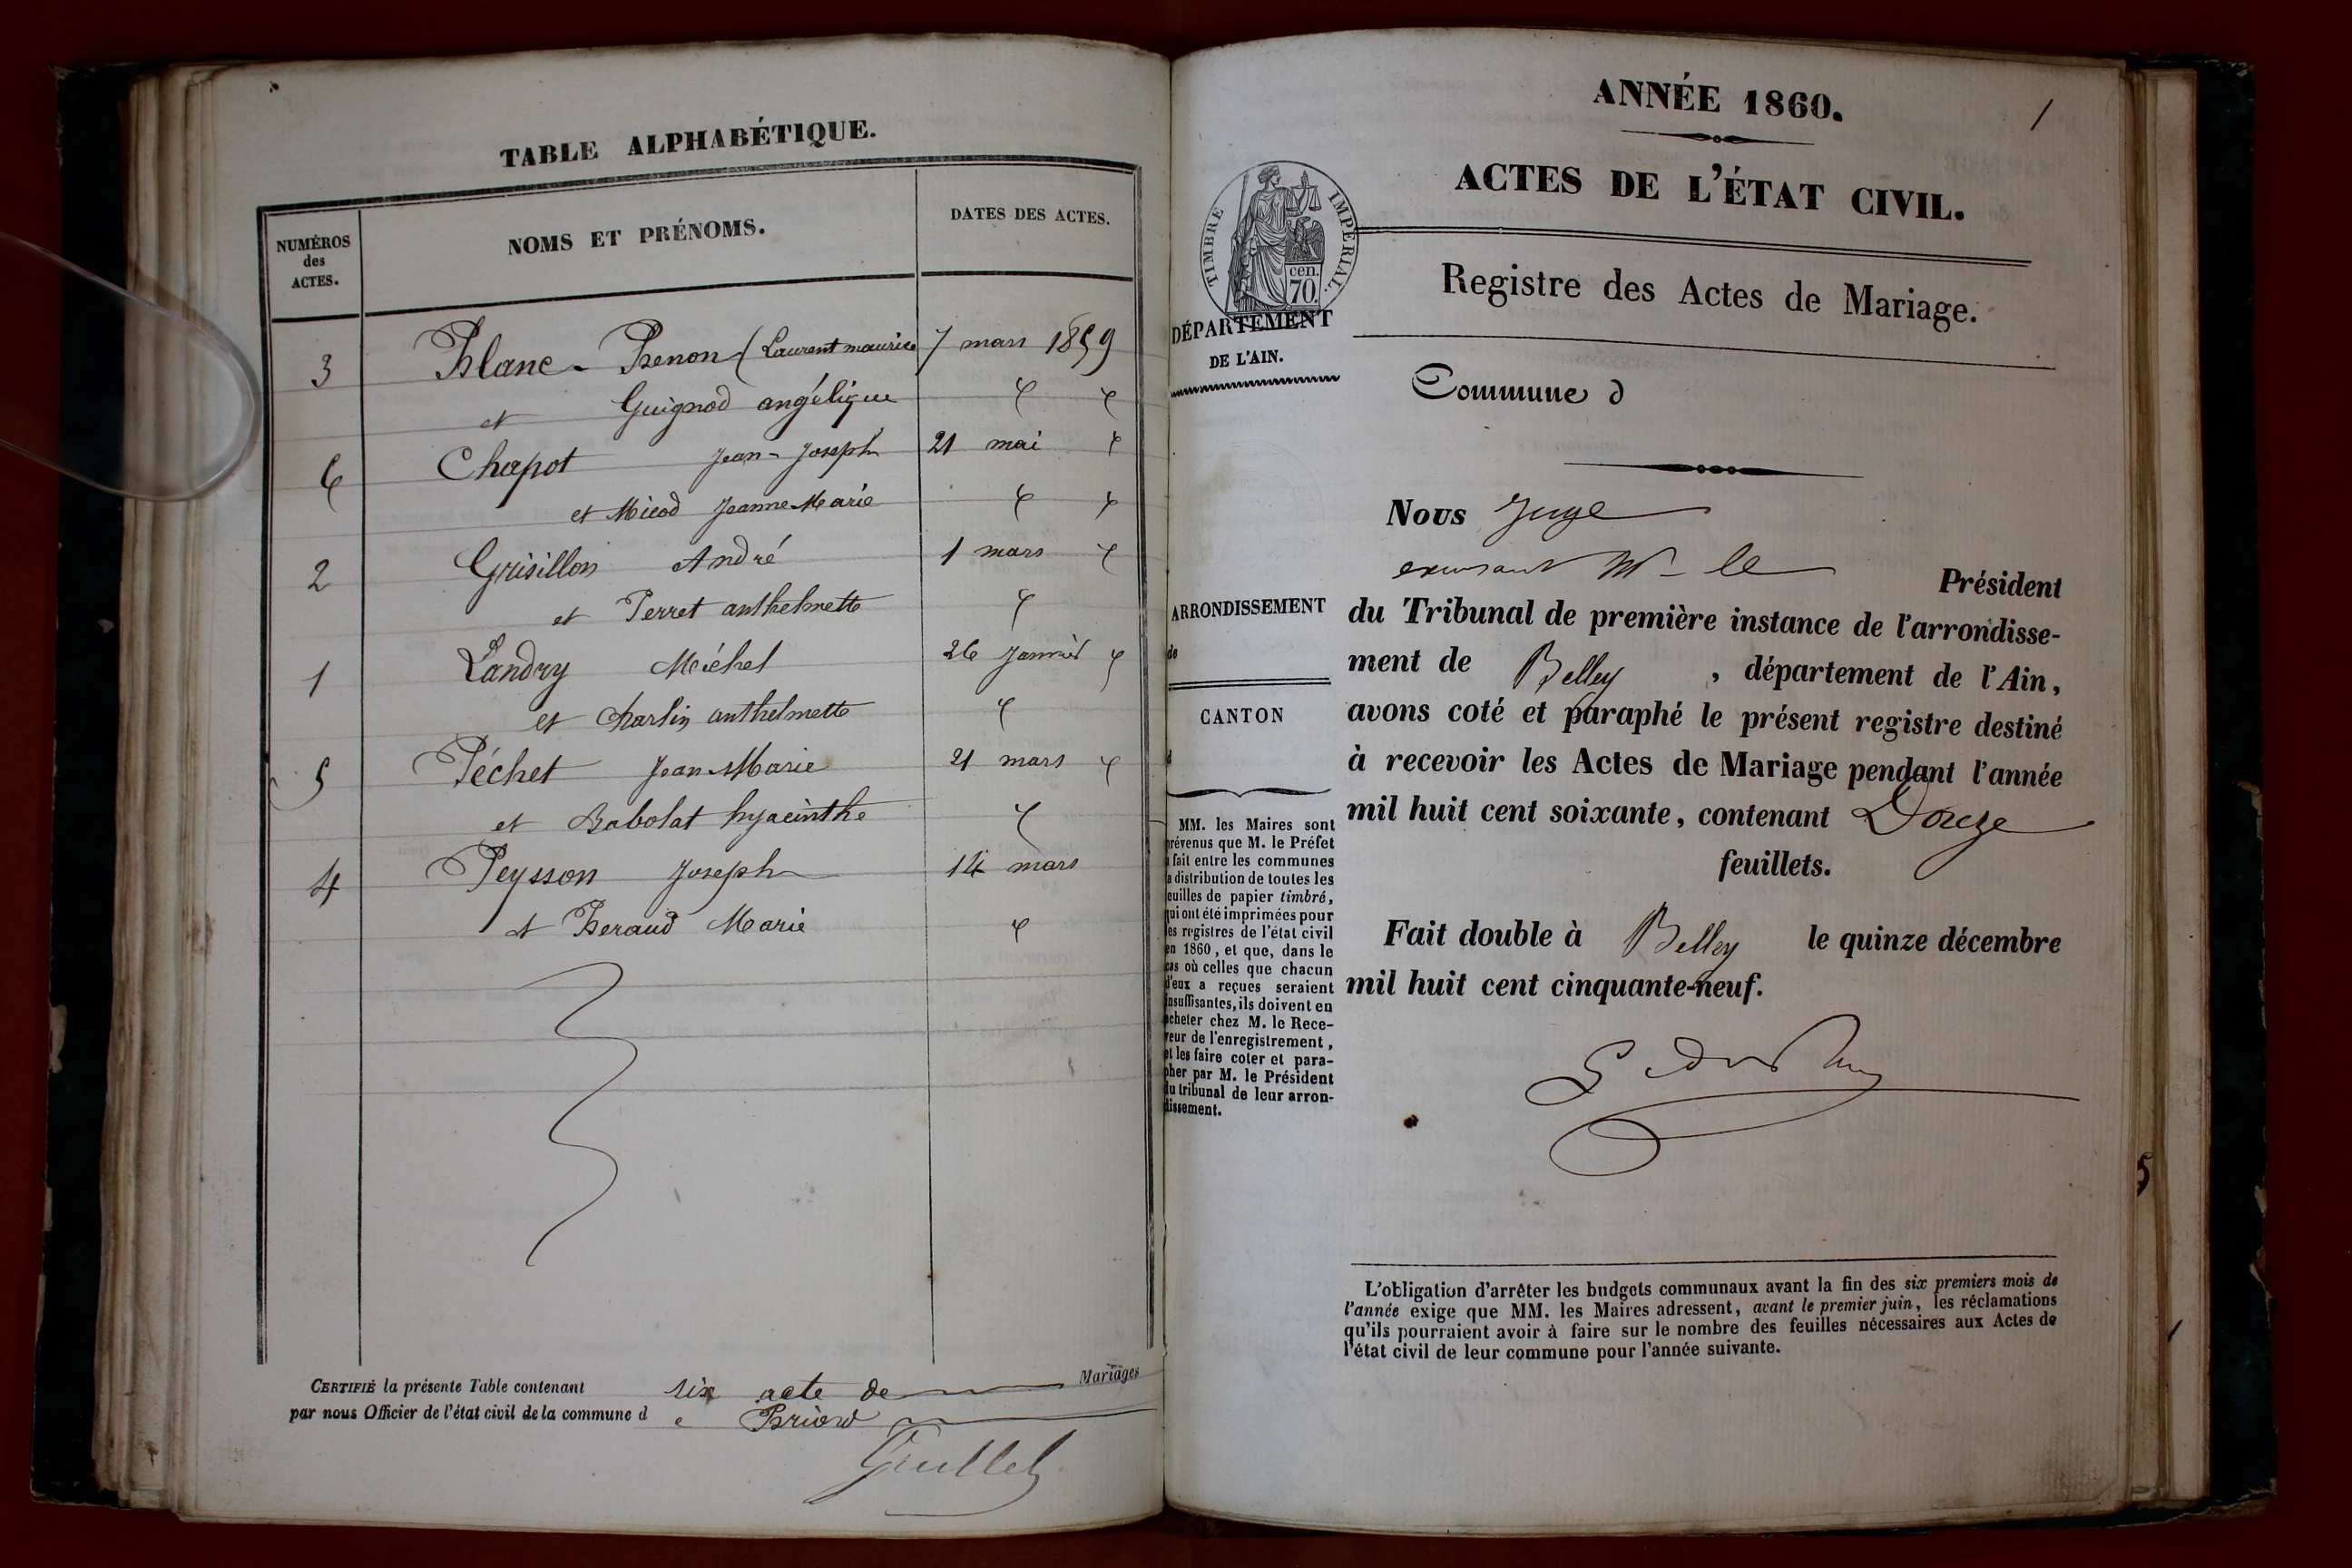 TABLE ALPHABÉTIQUE.
NUMÉROS
des
ACTES.
NOMS ET PRÉNOMS.
DATES DES ACTES.
3 Blanc - Benon (Laurent maurice 7 mars 1859
et Guignod angélique
6 Chapot Jean-Joseph 21 mai
et Micod Jeanne Marie
2 Grisillon André 1 mars
et Perret anthelmette
1 Landry Michel 26 Janvier
et Charlin anthelmette
5 Péchet Jean-Marie 21 mars
et Babolat hyacinthe
4 Peysson Joseph 14 mars
et Beraud Marie
CERTIFIÉ la présente Table contenant six acte de Mariages
par nous Officier de l'état civil de la commune de Briord
ANNÉE 1860.
1
ACTES DE L'ÉTAT CIVIL.
TIMBRE IMPÉRIAL.
cen.
70.
Registre des Actes de Mariage.
DÉPARTEMENT
DE L'AIN.
Commune d
Nous Juge
M. le Président
du Tribunal de première instance de l'arrondisse-
ment de Belley, département de l'Ain,
avons coté et paraphé le présent registre destiné
à recevoir les Actes de Mariage pendant l'année
mil huit cent soixante, contenant Douze
feuillets.
Fait double à Belley le quinze décembre
mil huit cent cinquante-neuf.
ARRONDISSEMENT
de
CANTON
d
MM. les Maires sont
prévenus que M. le Préfet
a fait entre les communes
la distribution de toutes les
feuilles de papier timbré,
qui ont été imprimées pour
les registres de l'état civil
en 1860, et que, dans le
cas où celles que chacun
d'eux a reçues seraient
insuffisantes, ils doivent en
acheter chez M. le Rece-
veur de l'enregistrement,
et les faire coter et para-
pher par M. le Président
du tribunal de leur arron-
dissement.
L'obligation d'arrêter les budgets communaux avant la fin des six premiers mois de
l'année exige que MM. les Maires adressent, avant le premier juin, les réclamations
qu'ils pourraient avoir à faire sur le nombre des feuilles nécessaires aux Actes de
l'état civil de leur commune pour l'année suivante.
5